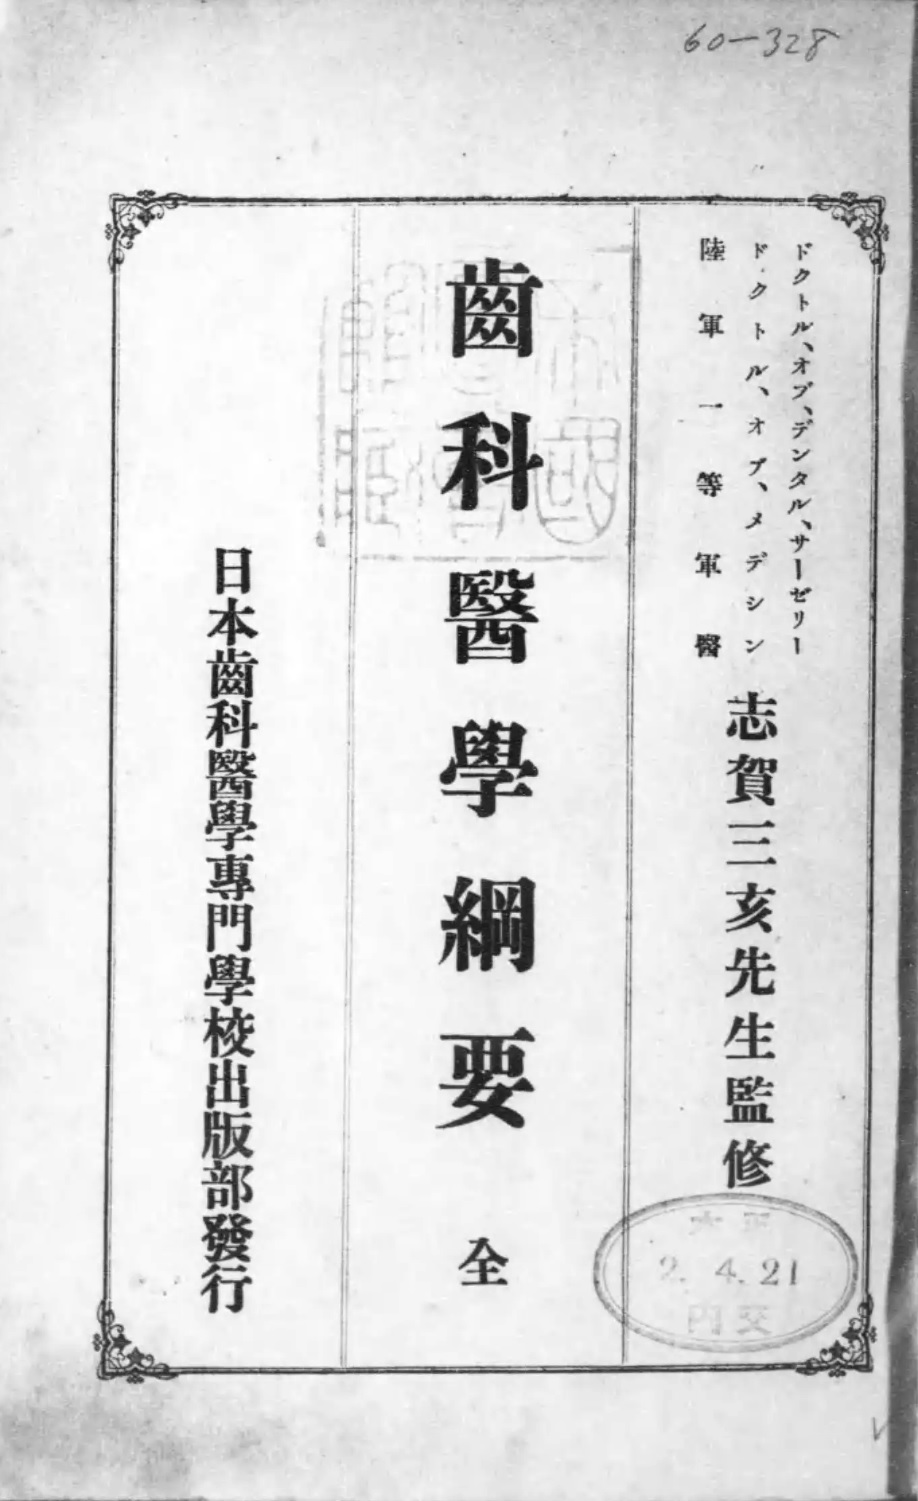 60-328
ドクトル、オブ、デンタル、サーゼリー
ドクトル、オブ、メデシン
陸軍一等軍醫
志賀三亥先生監修
齒科醫學綱要 全
日本齒科醫學專門學校出版部發行
大正
2. 4. 21
內交